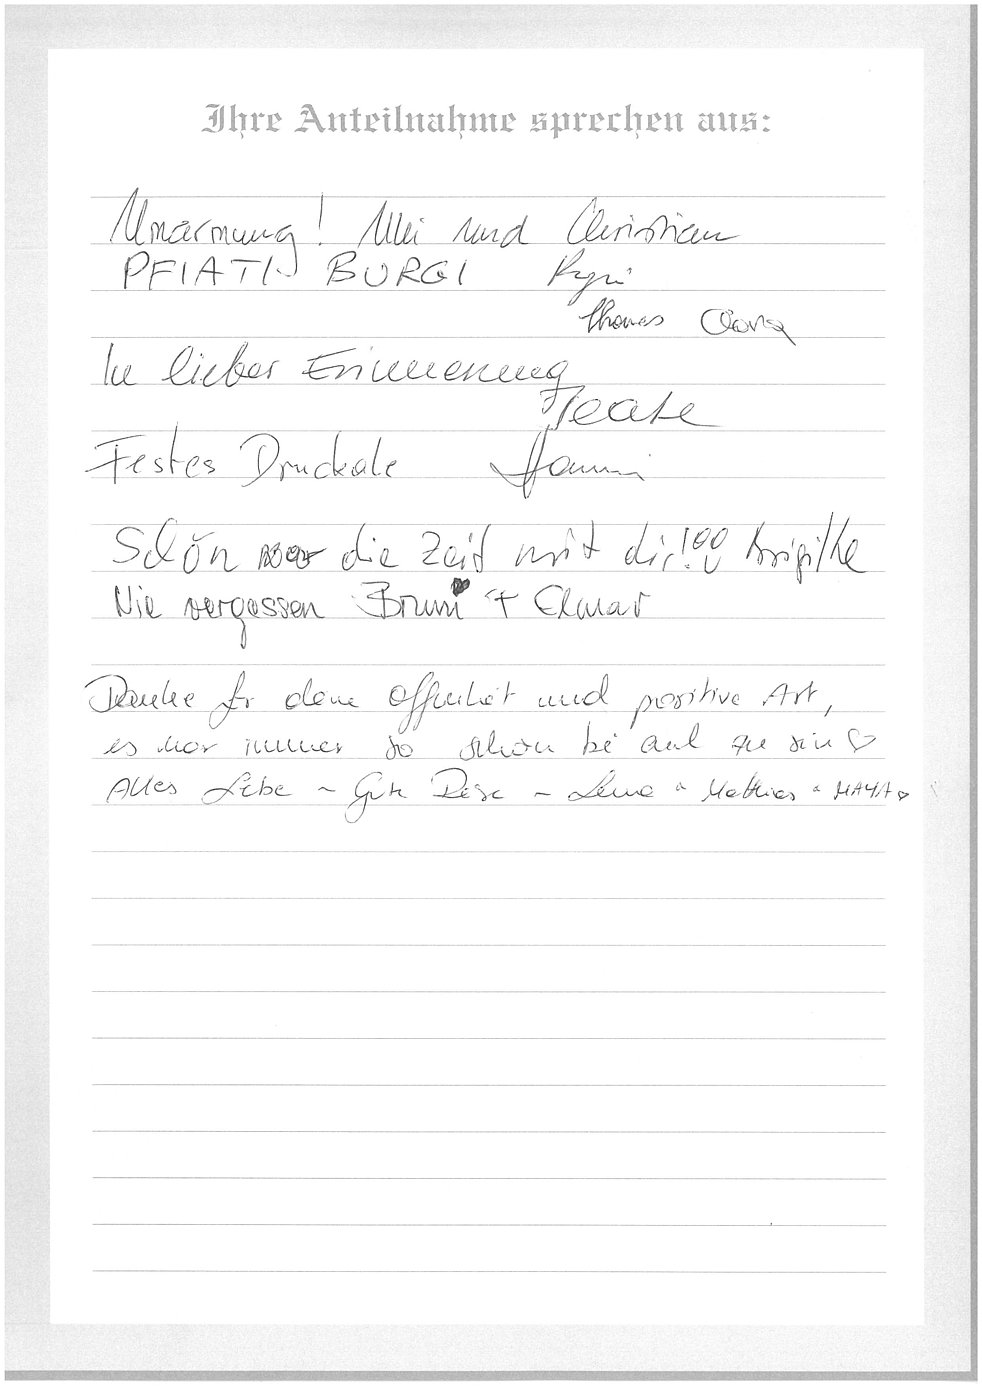 Ihre Anteilnahme sprechen aus:
Umarmung! Uli und Christian
PFIATI BURGI
Thomas
In lieber Erinnerung
Beate
Festes Druckale Hanni
Schön war die Zeit mit dir!!! Brigitte
Nie vergessen Bruni + Elmar
Danke für deine Offenheit und positive Art,
es war immer so schön bei auch zu sein ♡
Alles Liebe ~ Gute Reise ~ Lena Mathias MAYA ♡